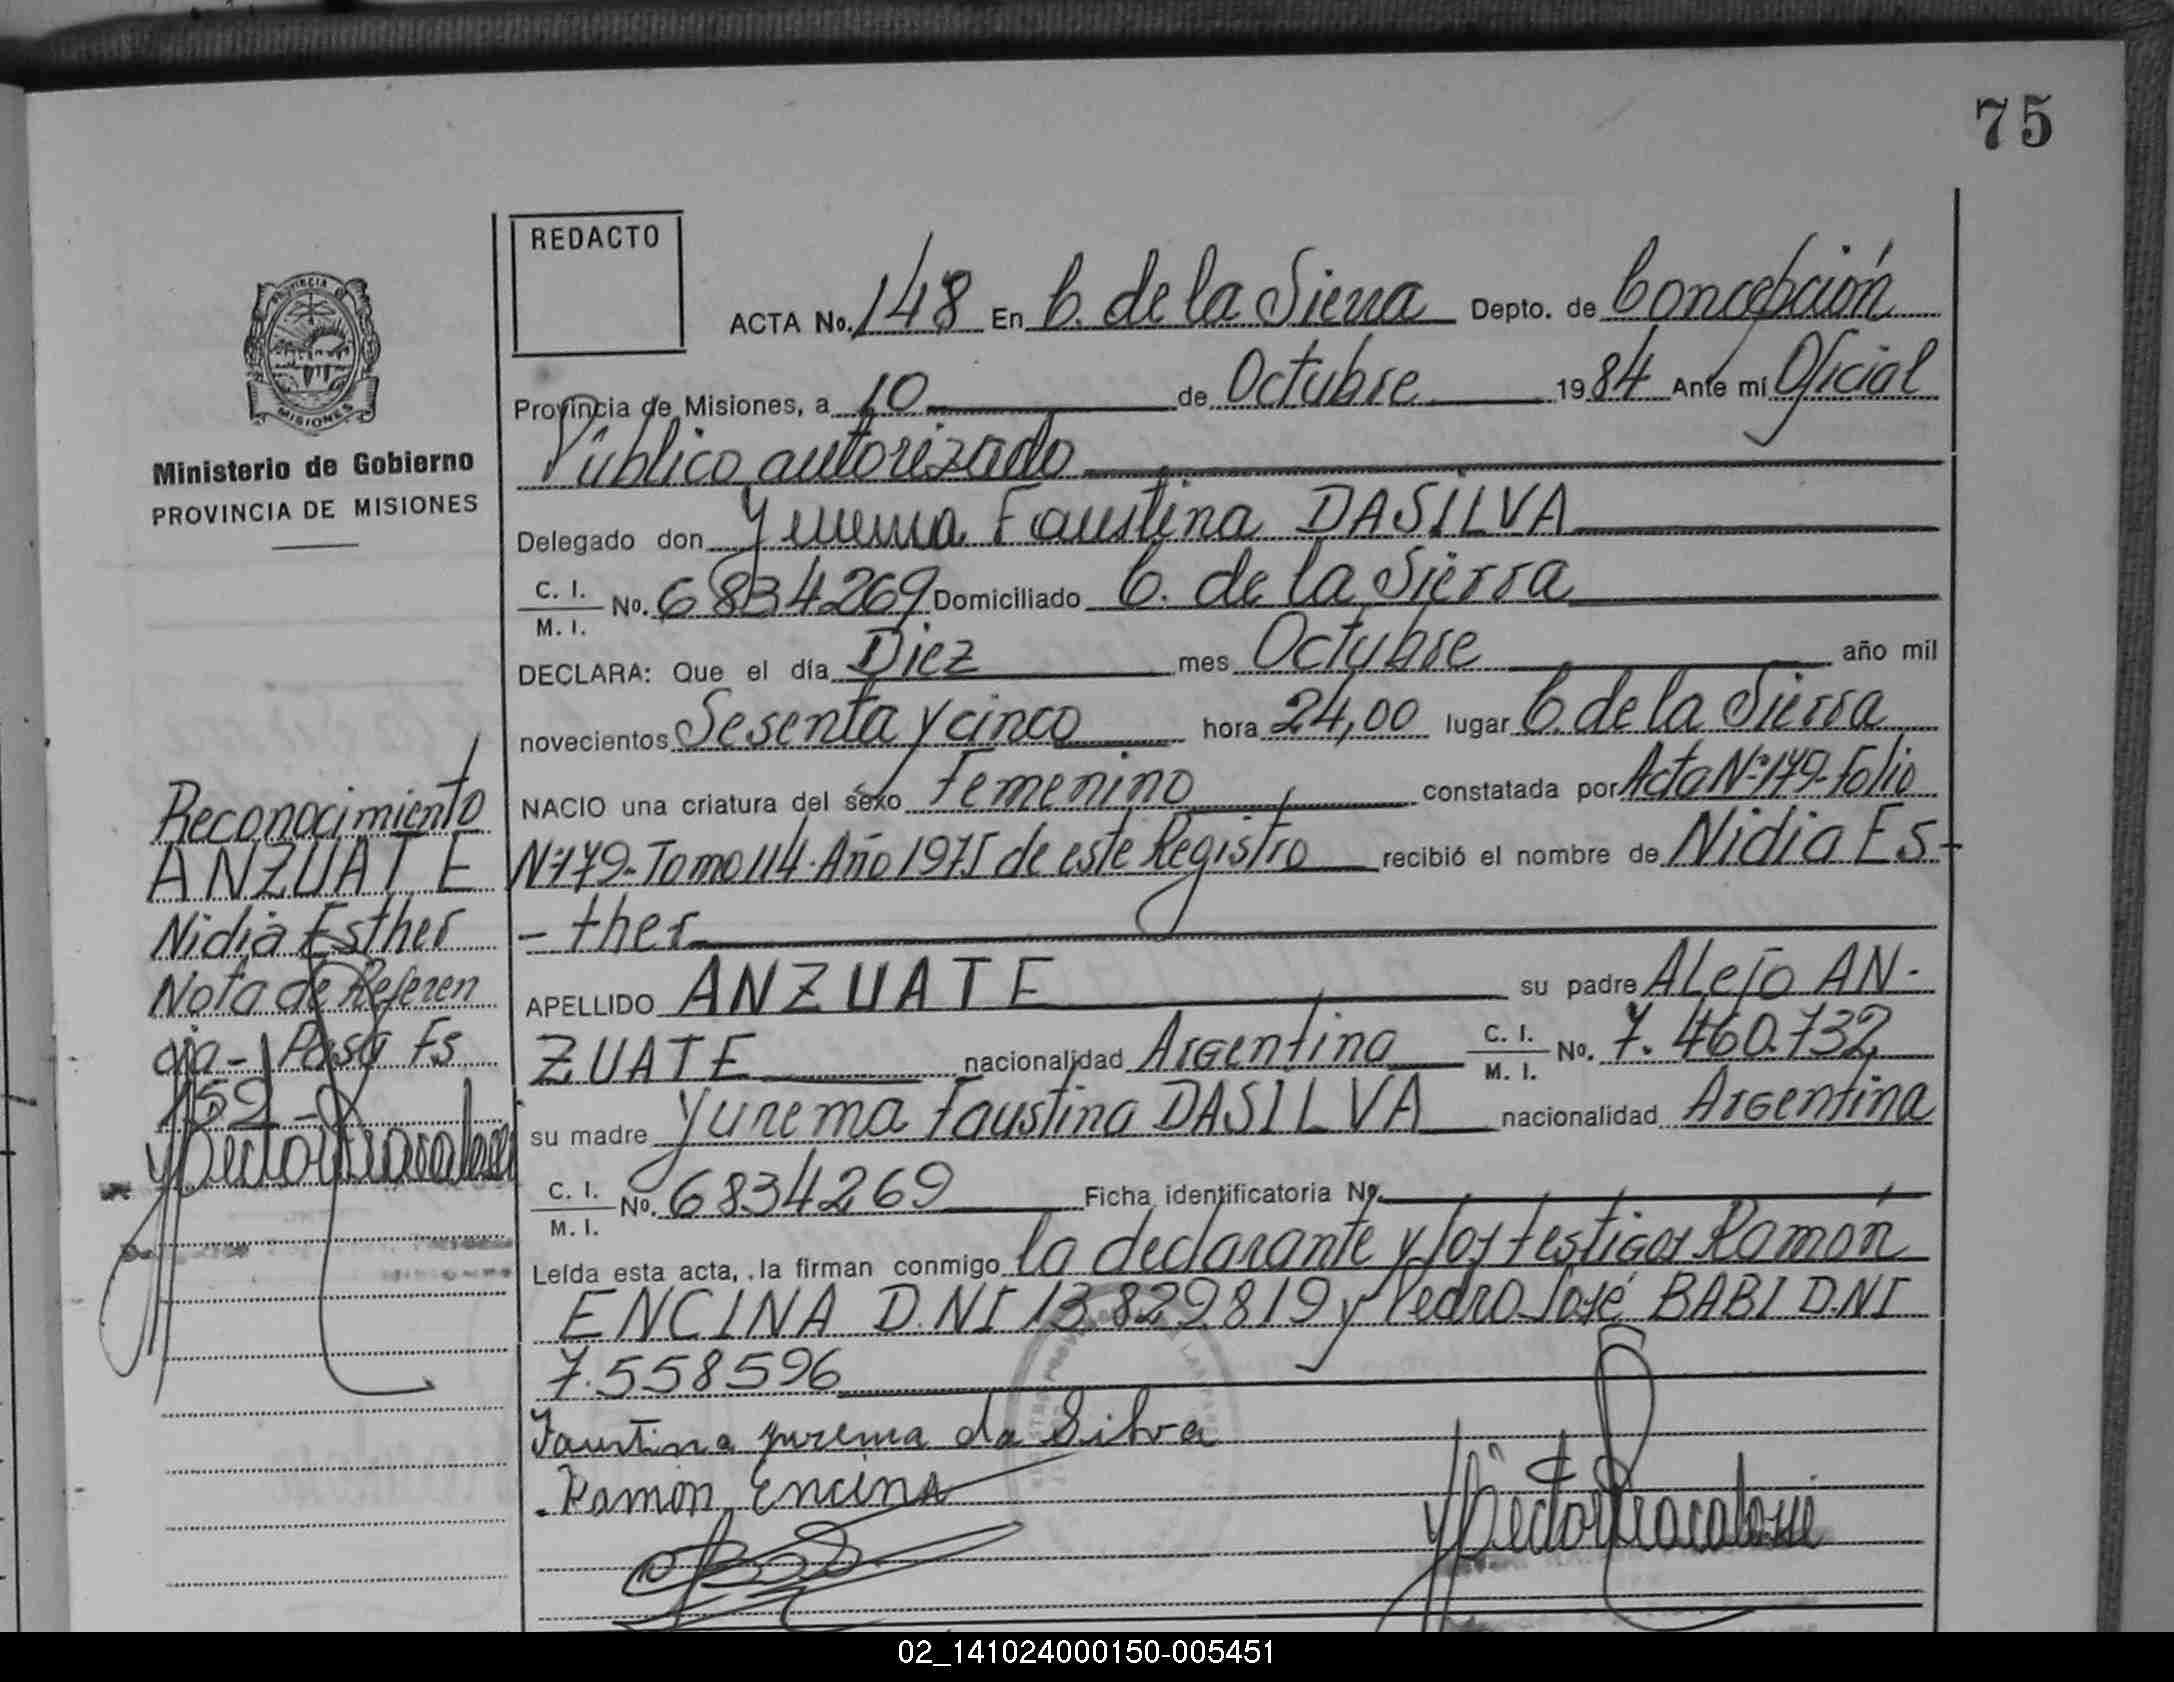 75
REDACTO
ACTA No. 148 En C. de la Sierra Depto. de Concepción
Provincia de Misiones, a 10 de Octubre 1984 Ante mí Oficial
Público autorizado
Ministerio de Gobierno
PROVINCIA DE MISIONES
Delegado don Yurema Faustina DASILVA
C. I.
M. I. No. 6834269 Domiciliado C. de la Sierra
DECLARA: Que el día Diez mes Octubre año mil
novecientos Sesenta y cinco hora 24,00 lugar C. de la Sierra
NACIO una criatura del sexo Femenino constatada por Acta Nº 179- Folio
Nº 179- Tomo 114. Año 1975 de este Registro recibió el nombre de Nidia Es-
- ther
APELLIDO ANZUATE su padre Alejo AN-
ZUATE nacionalidad Argentina C. I. M. I. No. 7.460.732
su madre Yurema Faustina DASILVA nacionalidad Argentina
C. I.
M. I. No. 6834269 Ficha identificatoria No.
Leída esta acta, la firman conmigo la declarante y los testigos Ramón
ENCINA D.NI 13.829819 y Pedro José BABI D.NI
7.558596
Faustina yurema da Silva
Ramón Encina
Reconocimiento
ANZUATE
Nidia Esther
Nota de Referen
cia- Pasa Fs
152-
02_141024000150-005451